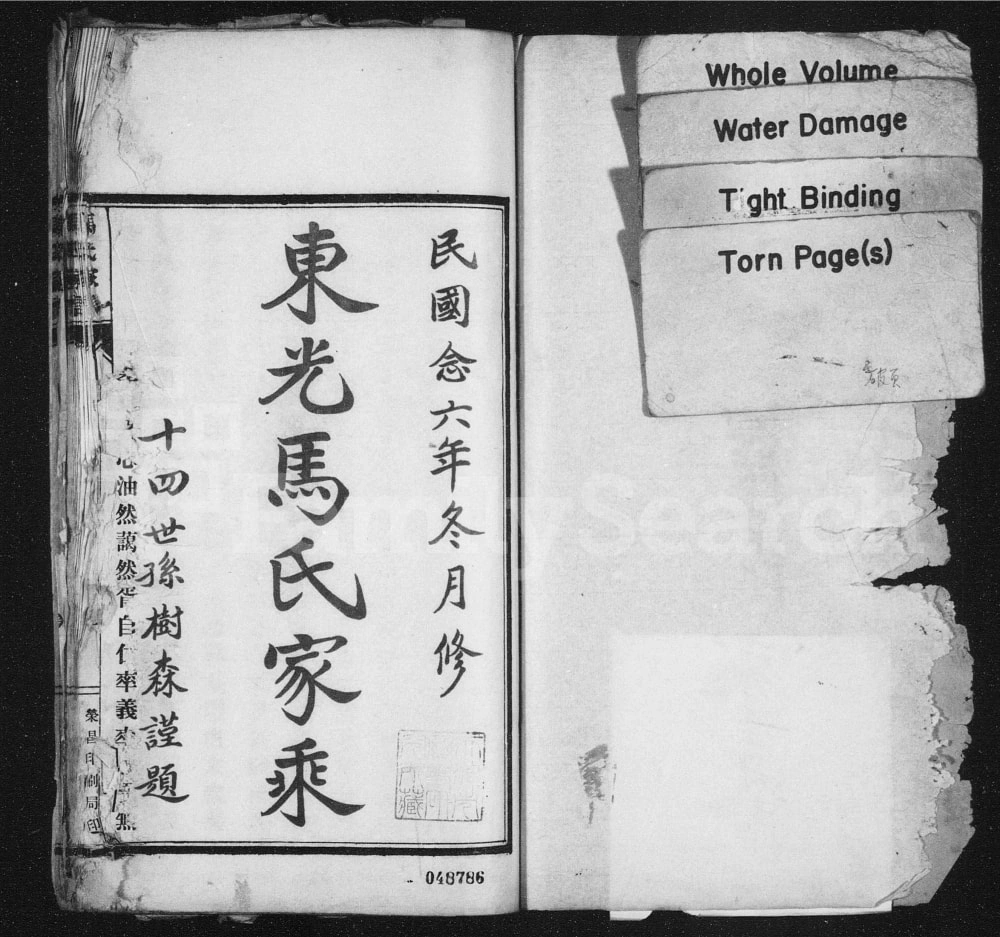 Whole Volume
Water Damage
Tight Binding
Torn Page(s)
民國念六年冬月修
東光馬氏家乘
十四世孫樹森謹題
油然藹然胥自仁率義
榮昌印刷局印
048786
FamilySearch